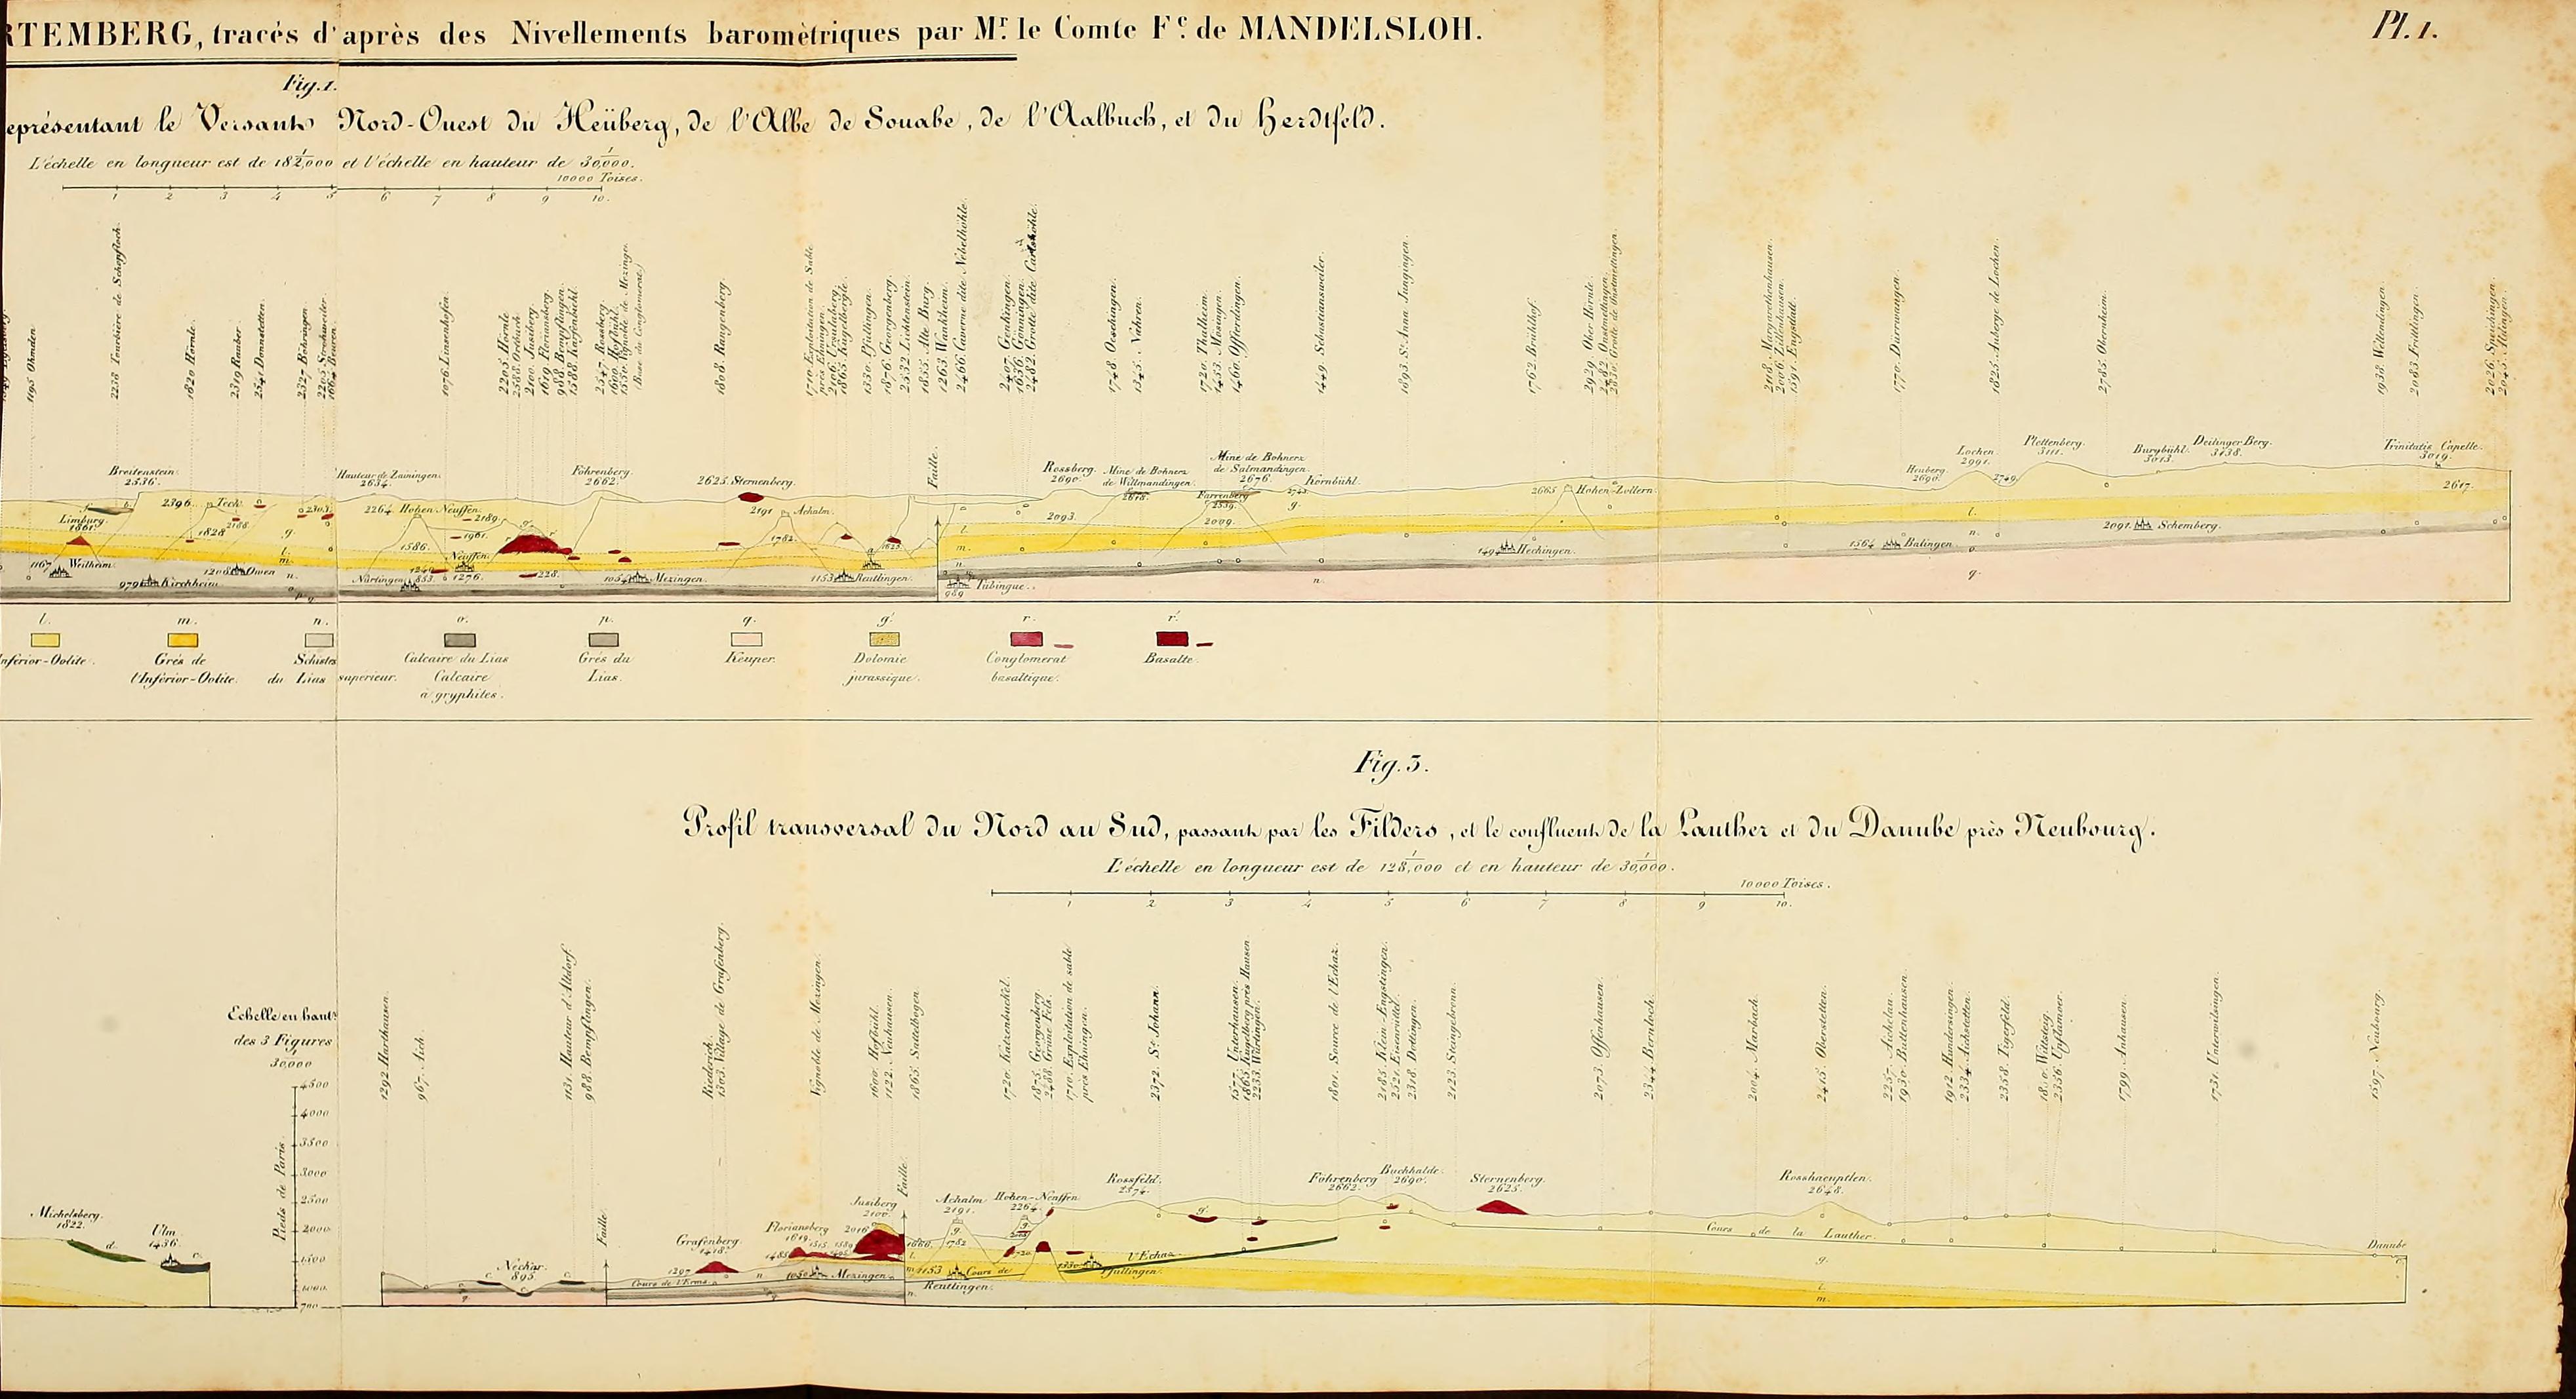 RTEMBERG, tracés d'après des Nivellements baromètriques par Mr. le Comte Fc. de MANDELSLOH.
Pl. 1.
Fig. 1.
eprésentant le Versant Nord-Ouest du Heüberg, de l'Albe de Souabe, de l'Aalbuch, et du Herdtfeld.
L'échelle en longueur est de 1/182,000 et l'échelle en hauteur de 1/30,000.
10000 Toises.
1 2 3 4 5 6 7 8 9 10.
1195 Ohmden.
2238 Tourbière de Schopfloch.
1820 Hörnle.
2319 Rauber.
2541 Donnstetten.
2327 Böhringen.
1076 Linsenhofen.
2205 Hörnle.
2100 Jusiberg.
1619 Floriansberg.
988 Bempflingen.
1588 Karfenbühl.
2547 Rossberg.
1600 Hofbühl.
1550 Vignoble de Mezingen.
(Base du Conglomerat.)
1808. Rangenberg.
1710 Exploitation de Sable
près Ehningen.
2106. Ursulaberg.
1865 Kugelbergle.
1330 Pfullingen.
1876. Georgenberg.
2532 Lichtenstein.
1855. Alte Burg.
1263 Wankheim.
2466. Caverne dite Nebelhöhle.
2407. Genkingen.
1636. Gönningen.
2482. Grotte dite Carlshöhle.
1748. Oeschingen.
1345. Nehren.
1720. Thalheim.
1453. Mösingen.
1460. Offerdingen.
1449. Sebastiansweiler.
1893. St. Anna Jungingen.
1762. Brühlhof.
2929. Ober Hörnle.
2482. Onstmettingen.
2118. Margarethenhausen.
2006. Zillenhausen.
1591. Engstlatt.
1770. Durrwangen.
1825. Auberge de Lochen.
2785. Obernheim.
1938. Wellendingen.
2083. Frittlingen.
2026. Spaichingen.
Breitenstein.
2536.
Hauteur de Zainingen.
2634.
Föhrenberg.
2662.
2625. Sternenberg.
Faille.
Rossberg.
2690.
Mine de Bohnerz
de Willmandingen.
2618.
Mine de Bohnerz
de Salmandingen.
2676.
Kornbühl.
Farrenberg
2539.
2665 Hohen-Zollern.
Heuberg.
2690.
Lochen
2991.
2749.
Plettenberg.
3111.
Burgbühl.
3013.
Deilinger Berg.
3138.
Trinitatis Capelle.
3019.
2617.
Limburg.
1861.
2396. Teck.
2188.
1828
2264 Hohen Neuffen.
2189.
1961.
1586.
Neuffen.
1276.
2191 Achalm.
1782.
2093.
2009.
1167 Weilheim.
979 Kirchheim.
Owen
Nürtingen 853.
Mezingen.
1153 Reutlingen.
Tübingue.
989
1494 Hechingen.
1564 Balingen.
2091. Schemberg.
l. m. n. o. p. q. g' r. r'.
Inférior-Oolite.
Grés de
l'Inférior-Oolite.
Schistes
du Lias supérieur.
Calcaire du Lias
Calcaire
à gryphites.
Grés du
Lias.
Keuper.
Dolomie
jurassique.
Conglomerat
basaltique.
Basalte.
Fig. 3.
Profil transversal du Nord au Sud, passant par les Filders, et le confluent de la Lauther et du Danube près Neubourg.
L'échelle en longueur est de 1/128,000 et en hauteur de 1/30,000.
10000 Toises.
1 2 3 4 5 6 7 8 9 10.
Echelle en haut.
des 3 Figures
1/30,000
Pieds de Paris.
4500
4000
3500
3000
2500
2000
1500
1000
700
Michelsberg.
1822.
Ulm
1436.
1292 Harthausen.
967. Aich.
1131. Hauteur d'Altdorf.
988. Bempflingen.
Riederich.
1303. Village de Grafenberg.
Vignoble de Mezingen.
1600. Hofbühl.
1122. Neuhausen.
1865. Sattelbogen.
1720. Katzenbuckel.
1875. Georgenberg.
2488. Grüne Fels.
1710. Exploitation de sable
près Ehningen.
2372. St. Johann.
1577. Unterhausen.
1865 Kugelberg près Hausen
2233 Würtingen.
1801. Source de l'Echaz.
2185. Klein-Engstingen.
2521. Eisenrüttel.
2318. Dottingen.
2123. Stongebronn.
2073. Offenhausen.
2344. Bernloch.
2004. Marbach.
2415. Oberstetten.
2257. Aichelau.
1930. Buttenhausen.
1912. Hundersingen.
2334. Aichstetten.
2358. Tigerfeld.
1810. Wittstaig.
2356. Upflamör.
1799. Anhausen.
1731. Unterwilsingen.
1597. Neubourg.
Nechar.
895.
Faille.
Grafenberg.
1418.
1297
Cours de l'Erms.
Floriansberg
1619.
Jusiberg
2100.
2016
1050 Mezingen.
Faille.
1666.
Achalm
2191.
1782
1153
Cours de
Reutlingen.
Hohen-Neuffen.
2264.
1330 Pfullingen.
l'Echaz.
Rossfeld.
2374.
Föhrenberg
2662.
Buchhalde.
2690.
Sternenberg.
2625.
Rosshaeuptlen.
2648.
Cours de la Lauther.
Danube
g.
l.
m.